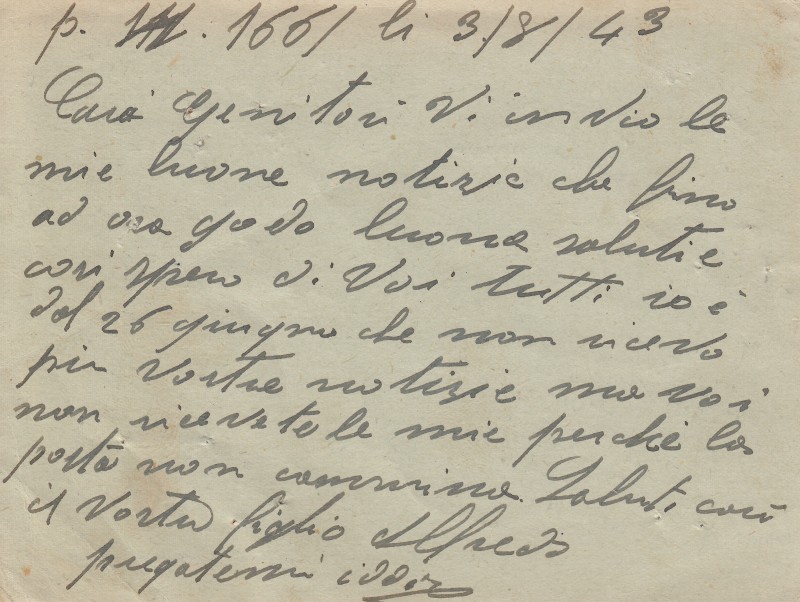 p. M. 166/ li 3/8/43
Cari Genitori Vi invio le
mie buone notizie che fino
ad ora godo buona salute e
cosi spero di Voi tutti io è
dal 26 giugno che non ricevo
piu vostre notizie ma voi
non ricevete le mie perchè la
posta non cammina Saluti cari
il Vostro figlio Alfredo
pregatemi iddio